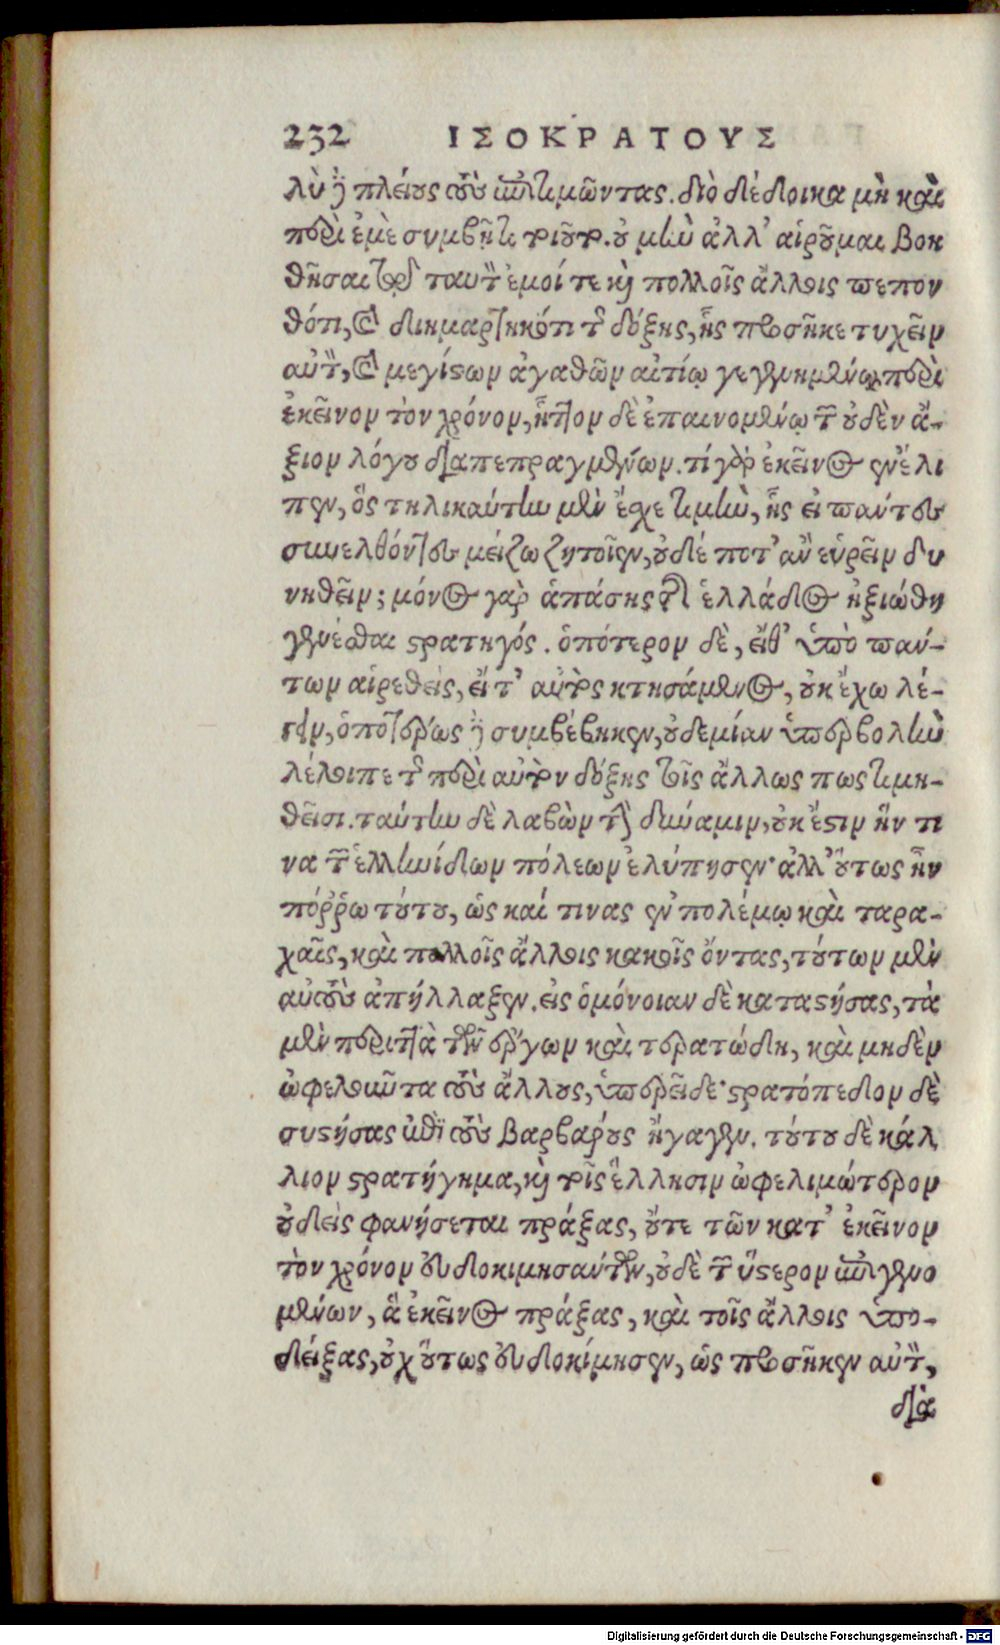 232 ΙΣΟΚΡΑΤΟΥΣ
λὺ δὲ πλείους τοὺς ἐπιτιμῶντας. διὸ δέδοικα μὴ καὶ
περὶ ἐμὲ συμβῇ τι τοιοῦτον. οὐ μὴν ἀλλ' αἱροῦμαι βοη
θῆσαι τῷ ταυτὸν ἐμοί τε καὶ πολλοῖς ἄλλοις πεπον
θότι, καὶ διημαρτηκότι τῆς δόξης, ἧς προσῆκε τυχεῖν
αὐτὸν, καὶ μεγίστων ἀγαθῶν αἰτίῳ γεγενημένῳ περὶ
ἐκεῖνον τὸν χρόνον, ἧττον δὲ ἐπαινομένῳ τῶν οὐδὲν ἄ-
ξιον λόγου διαπεπραγμένων. τί γὰρ ἐκεῖνος ἐνέλι
πεν, ὃς τηλικαύτην μὲν ἔχε τιμὴν, ἧς εἰ πάντες
συνελθόντες μείζω ζητοῖεν, οὐδέ ποτ' ἂν εὑρεῖν δυ
νηθεῖεν; μόνος γὰρ ἁπάσης τῆς ἑλλάδος ἠξιώθη
γενέσθαι στρατηγός. ὁπότερον δὲ, εἴθ' ὑπὸ πάν-
των αἱρεθεὶς, εἴτ' αὐτὸς κτησάμενος, οὐκ ἔχω λέ-
γειν, ὁποτέρως δὲ συμβέβηκεν, οὐδεμίαν ὑπερβολὴν
λέλοιπε τῆς περὶ αὐτὸν δόξης τοῖς ἄλλως πως τιμη-
θεῖσι. ταύτην δὲ λαβὼν τὴν δύναμιν, οὐκ ἔστιν ἥν τι
να τῶν ἑλληνίδων πόλεων ἐλύπησεν· ἀλλ' οὕτως ἦν
πόῤῥω τούτου, ὡς καί τινας ἐν πολέμῳ καὶ ταρα-
χαῖς, καὶ πολλοῖς ἄλλοις κακοῖς ὄντας, τούτων μὲν
αὐτοὺς ἀπήλλαξεν. εἰς ὁμόνοιαν δὲ καταστήσας, τὰ
μὲν περιττὰ τῶν ἔργων καὶ τερατώδη, καὶ μηδὲν
ὠφελοῦντα τοὺς ἄλλους, ὑπερεῖδε· στρατόπεδον δὲ
συστήσας ἐπὶ τοὺς βαρβάρους ἤγαγεν. τούτου δὲ κάλ
λιον στρατήγημα, καὶ τοῖς ἕλλησιν ὠφελιμώτερον
οὐδεὶς φανήσεται πράξας, οὔτε τῶν κατ' ἐκεῖνον
τὸν χρόνον εὐδοκιμησάντων, οὐδὲ τῶν ὕστερον ἐπιγενο
μένων, ἃ ἐκεῖνος πράξας, καὶ τοῖς ἄλλοις ὑπο-
δείξας, οὐχ οὕτως εὐδοκίμησεν, ὡς προσῆκεν αὐτὸν,
διὰ
Digitalisierung gefördert durch die Deutsche Forschungsgemeinschaft - DFG